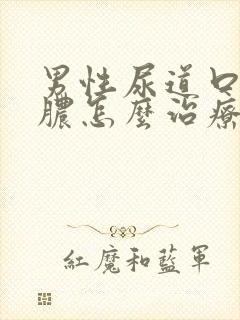 男性尿道口
膿怎麼治療
紅魔和藍軍